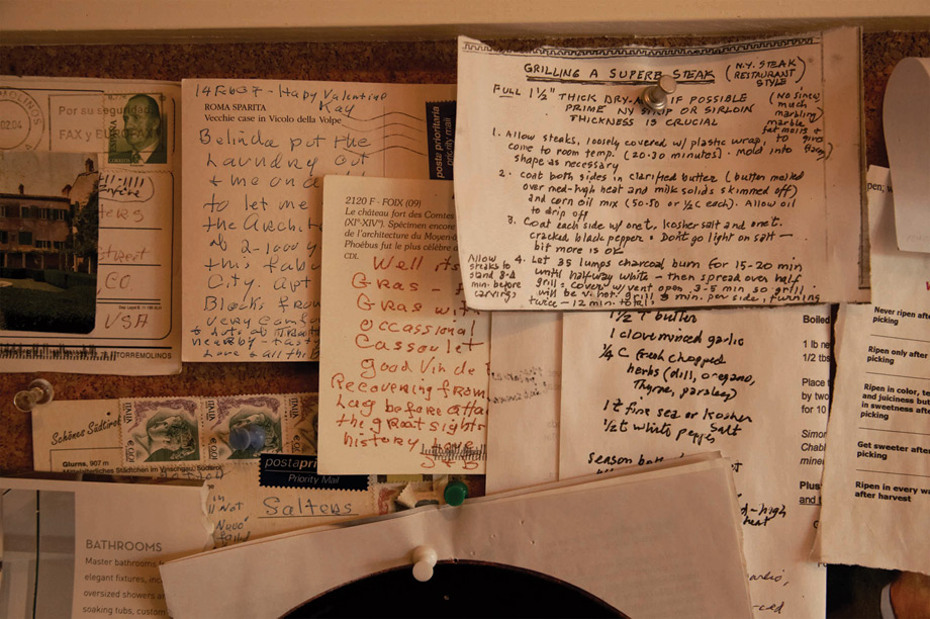 MOLINOS
02.04
Por su seguridad
FAX y EUROFAX
Street
CO
USA
TORREMOLINOS
14 Feb 07 - Happy Valentine
Kay
ROMA SPARITA
Vecchie case in Vicolo della Volpe
Belinda put the
laundry out
& me on a
to let me
the Archit
ab 2-1000 y
this fabu
City. Apt
Blocks from
very
nearby
Love & all the B
poste prioritaria
priority mail
2120 F - FOIX (09)
Le château fort des Comtes
(XIe-XIVe). Spécimen encore
de l'architecture du Moyen-
Phoebus fut le plus célèbre d
CDL
Well its
Gras - f
Gras wit
occassional
Cassoulet
good Vin de
Recovering from
Lag before atta
the great sights
history
GRILLING A SUPERB STEAK (N.Y. STEAK RESTAURANT STYLE)
FULL 1½" THICK DRY-A IF POSSIBLE
PRIME NY STRIP OR SIRLOIN
THICKNESS IS CRUCIAL
1. Allow steaks, loosely covered w/ plastic wrap, to
come to room temp. (20-30 minutes). Mold into
shape as necessary
2. coat both sides in clarified butter (butter melted
over med-high heat and milk solids skimmed off)
and corn oil mix (50-50 or ½c each). Allow oil
to drip off
3. Coat each side w/ one t. kosher salt and one t.
cracked black pepper. Don't go light on salt -
bit more is ok!
4. Let 35 lumps charcoal burn for 15-20 min
until halfway white - then spread over half
grill - cover w/ vent open, 3-5 min so grill
will be v. hot. grill 3 min. per side, turning
twice - 12 min. total!
Allow
steaks to
stand 3-4
min. before
carving
1½ T butter
1 clove minced garlic
¼ C fresh chopped
herbs (dill, oregano,
Thyme, parsley)
1 t fine sea or kosher
salt
½ t white pepper
season
d-high
heat
Boiled
1 lb ne
1/2 tbs
Place t
by two
for 10
Simor
Chabl
miner
Plus
and t
pen,
Never ripen after
picking
Ripen only after
picking
Ripen in color, te
and juiciness but
in sweetness after
picking
Get sweeter after
picking
Ripen in every wa
after harvest
Schöne Südtirol
Glurns, 907 m
ITALIA
ITALIA
postaprio
Priority Mail
in Not
Salters
BATHROOMS
Master bathrooms
elegant fixtures, inc
oversized showers a
soaking tubs, custom